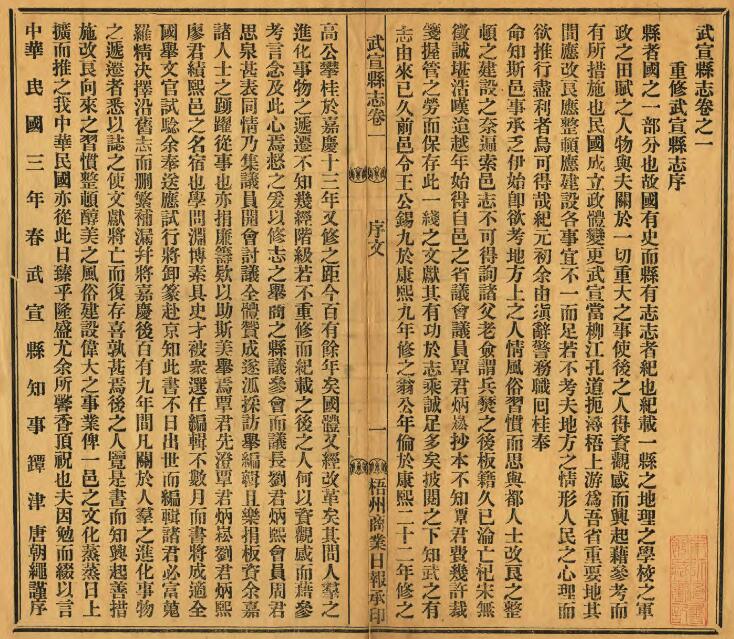 武宣縣志卷之一
重修武宣縣志序
縣者國之一部分也故國有史而縣有志志者紀也紀載一縣之地理之學校之軍
政之田賦之人物與夫關於一切重大之事使後之人得資觀感而興起藉參考而
有所措施也民國成立政體變更武宣當柳江孔道扼潯梧上游爲吾省重要地其
間應改良應整頓應建設各事宜不一而足若不考夫地方之情形人民之心理而
欲推行盡利者烏可得哉紀元初余由滇辭警務職回桂奉
命知斯邑事承乏伊始卽欲考地方上之人情風俗習慣而思與都人士改良之整
頓之建設之奈遍索邑志不可得詢諸父老僉謂兵燹之後板籍久已淪亡杞宋無
徵誠堪浩嘆迨越年始得自邑之省議會議員覃君炳崧抄本不知覃君費幾許裁
箋握管之勞而保存此一綫之文獻其有功於志乘誠足多矣披閱之下知武之有
志由來已久前邑令王公錫九於康熙九年修之翁公年倫於康熙二十二年修之
武宣縣志卷一
序文
一
梧州商業日報承印
高公攀桂於嘉慶十三年又修之距今百有餘年矣國體又經改革矣其間人羣之
進化事物之遞遷不知幾經階級若不重修而紀載之後之人何以資觀感而藉參
考言念及此心焉惄之爰以修志之舉商之縣議參會而議長劉君炳熙會員周君
思泉甚表同情乃集議員開會討議全體贊成遂派採訪舉編輯且樂捐板資余嘉
諸人士之踴躍從事也亦捐廉籌欵以助斯美舉焉覃君先澄覃君炳崧劉君炳熙
廖君績熙邑之名宿也學問淵博素具史才被衆選任編輯不數月而書將成適全
國舉文官試騐余奉送應試行將卸篆赴京知此書不日出世而編輯諸君必富蒐
羅精决擇沿舊志而刪繁補漏幷將嘉慶後百有九年間凡關於人羣之進化事物
之遞遷者悉以誌之使文獻將亡而復存喜孰甚焉後之人覽是書而知興起善措
施改良向來之習慣整頓醇美之風俗建設偉大之事業俾一邑之文化蒸蒸日上
擴而推之我中華民國亦從此日臻乎隆盛尤余所馨香頂祝也夫因勉而綴以言
中華民國三年春武宣縣知事鐔津唐朝繩謹序